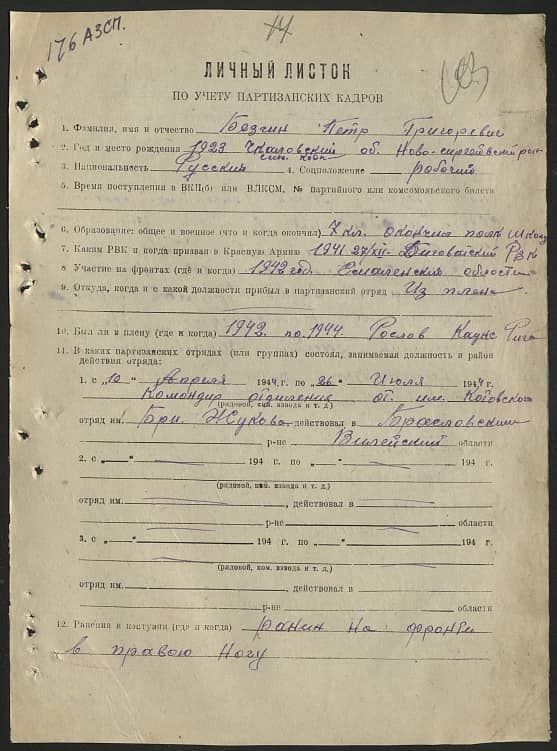 176 АЗСП.
14
103
ЛИЧНЫЙ ЛИСТОК
ПО УЧЕТУ ПАРТИЗАНСКИХ КАДРОВ
1. Фамилия, имя и отчество Безгин Петр Григоревич
2. Год и место рождения 1923 Чкаловский об. Ново-сергевский рон
3. Национальность Русский 4. Соцположение рабочий
5. Время поступления в ВКП(б) или ВЛКСМ, № партийного или комсомольского билета
6. Образование: общее и военное (что и когда окончил) 7 кл. окончил полк школу
7. Каким РВК и когда призван в Красную Армию 1941 27/XII- РВК
8 Участие на фронтах (где и когда) 1942 год. Смаленския области
9. Откуда, когда и с какой должности прибыл в партизанский отряд Из плена.
10. Был ли в плену (где и когда) 1942 по 1944 Рослов Каунс Рига
11. В каких партизанских отрядах (или группах) состоял, занимаемая должность и район
действия отряда:
1. с „10“ Апреля 1944 г. по „26“ Июля 1944 г.
Командир отделения от. им. Котовского
(рядовой, ком. взвода и т. д.)
отряд им. Бри. Жукова действовал в Браславским
р-не Вилейский области
2. с „ “ 194 г. по „ “ 194 г.
(рядовой, ком. взвода и т. д.)
отряд им. , действовал в
р-не области
3. с „ “ 194 г. по „ “ 194 г.
(рядовой, ком. взвода и т. д.)
отряд им. , действовал в
р-не области
12. Ранения и контузии (где и когда) ранин на фронти
в правою ногу